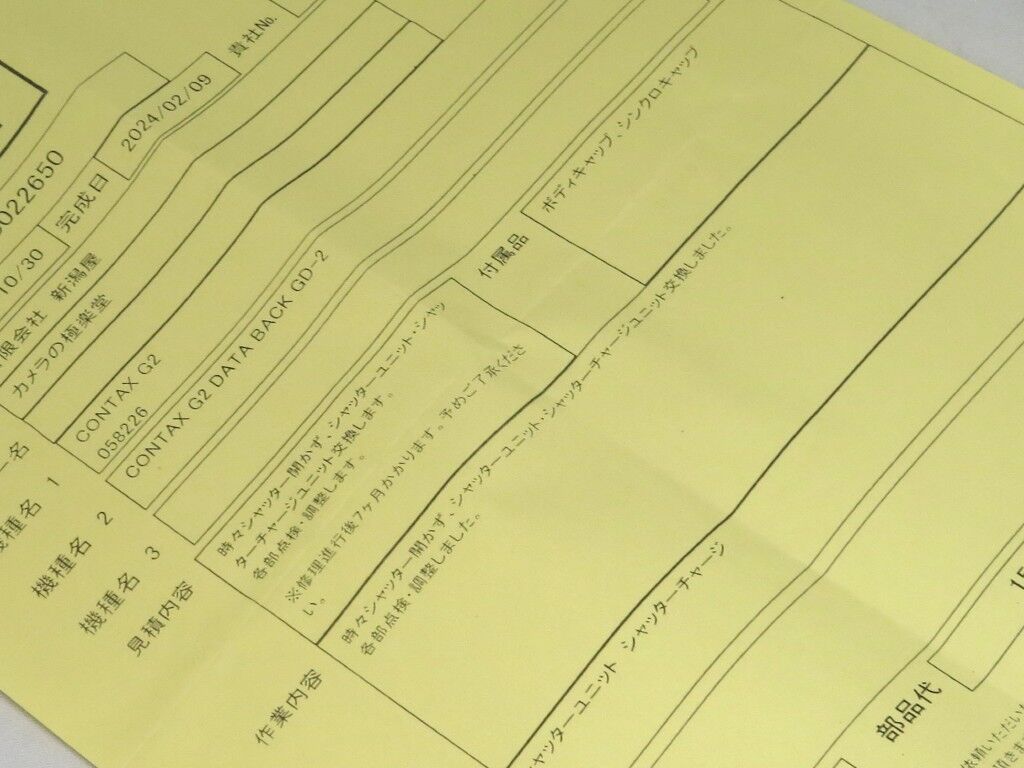 022650
10/30
完成日
2024/02/09
貴社No.
限会社 新潟屋
カメラの極楽堂
名
機種名 1
CONTAX G2
058226
機種名 2
CONTAX G2 DATA BACK GD-2
機種名 3
見積内容
時々シャッター開かず、シャッターユニット・シャッ
ターチャージユニット交換します。
各部点検・調整します。
※修理進行後7ヶ月かかります。予めご了承くださ
い。
付属品
ボディキャップ、シンクロキャップ
作業内容
時々シャッター開かず、シャッターユニット・シャッターチャージユニット交換しました。
各部点検・調整しました。
シャッターユニット シャッターチャージ
部品代
15
依頼いただいた
頂きま